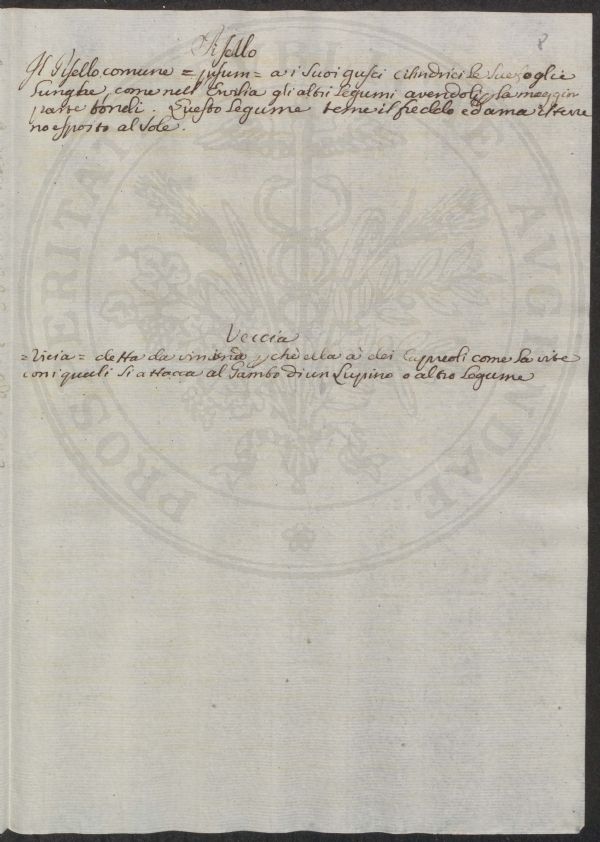 8
Pisello
Il Pisello comune = pisum = a i suoi gusci cilindrici le sue foglie
lunghe, come nell' Ervilia gli altri Legumi avendoli p la maggior
parte tondi. Questo Legume teme il freddo ed ama il terre
no esposto al Sole.
Veccia
= Vicia = detta da vinciendo, p chè ella à dei capreoli come la vite
con i quali si attacca al Gambo di un Lupino o altro Legume
PROSPERITATI AUGENDAE